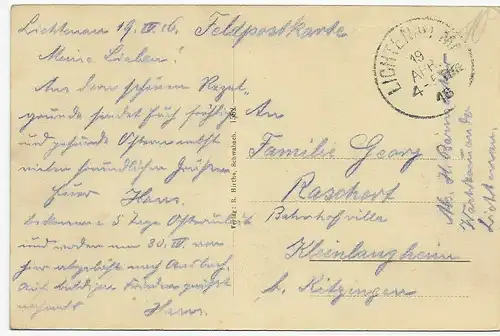 Lichtenau 19. IV. 16.
Feldpostkarte
Meine Lieben!
Aus dem schönen Rezat-
grunde sendet Euch fröhliche
und gesunde Ostern nebst
vielen freundlichen Grüßen
Euer Hans.
bekomme 5 Tage Osterurlaub
und werden am 30. IV. von
hier abgelöst nach Ansbach.
Auf baldiges
Hans
Verlag: R. Hirthe, Schwabach.
LICHTENAU
19
APR
4-5
16
An
Familie Georg
Raschert
Bahnhofvilla
Kleinlangheim
b. Kitzingen
Wachkommando
Lichtenau